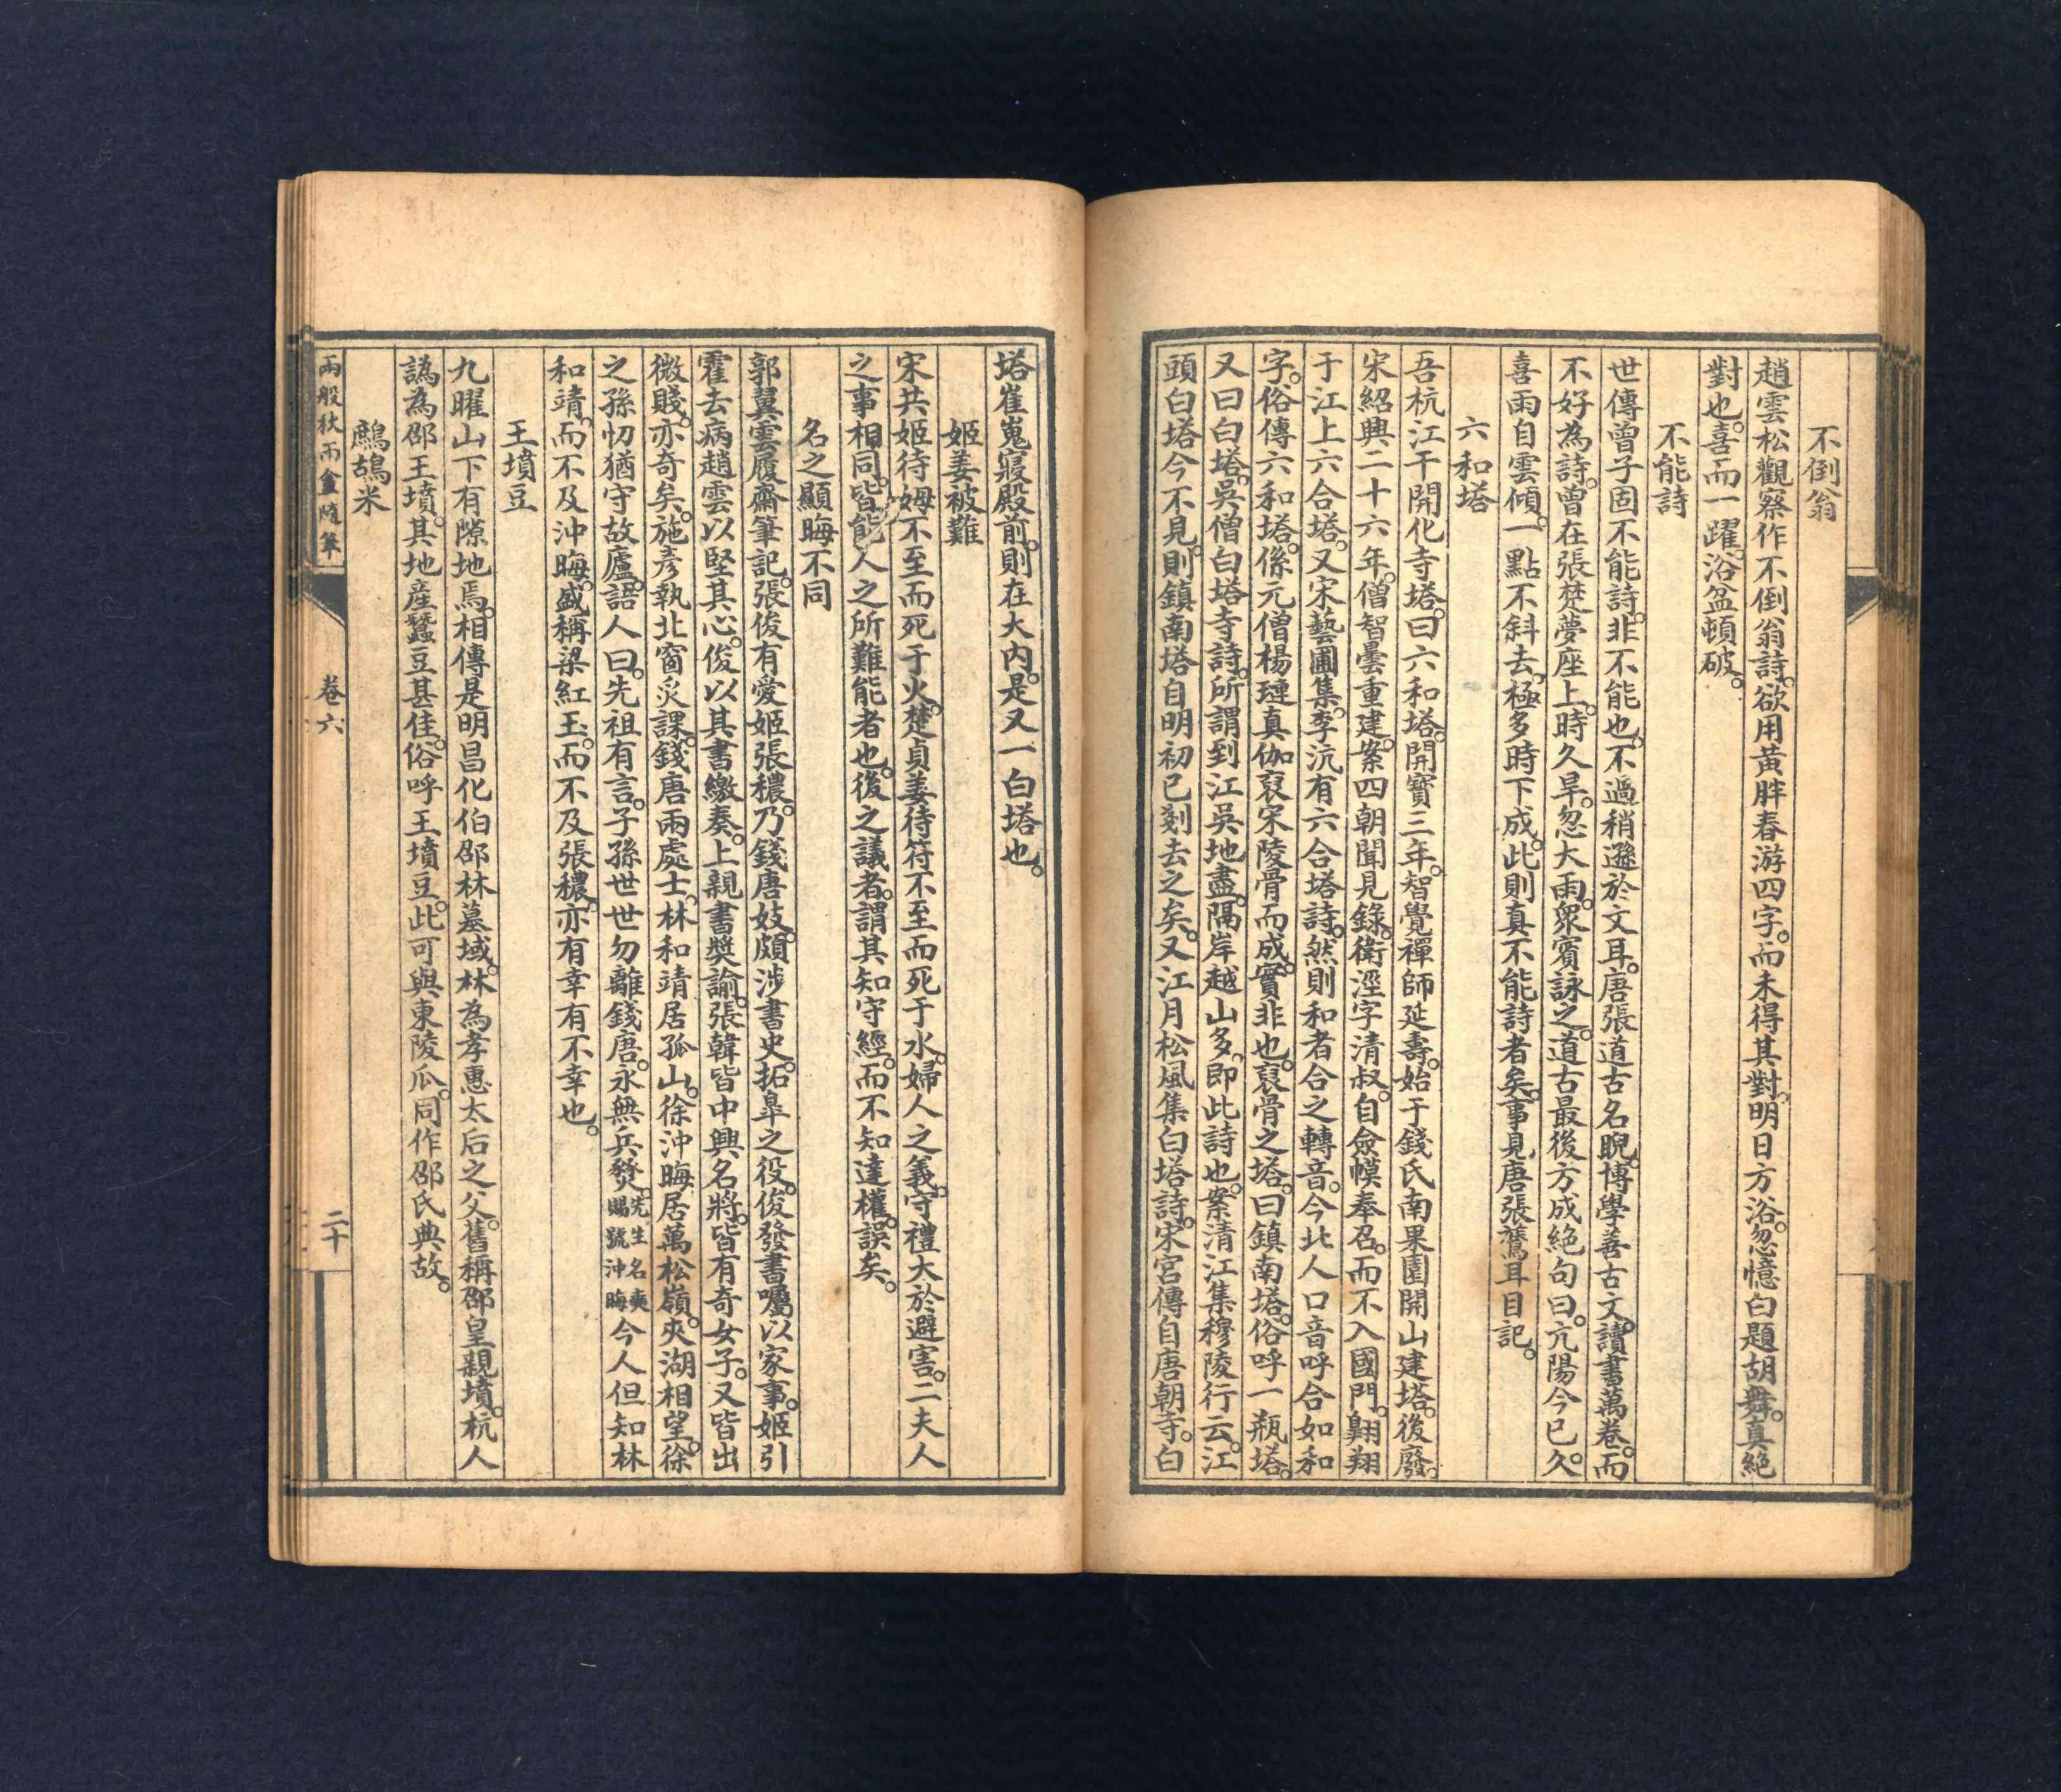 不倒翁
趙雲松觀察作不倒翁詩。欲用黃胖春游四字。而未得其對。明日方浴。忽憶白題胡舞。真絕
對也。喜而一躍。浴盆頓破。
不能詩
世傳曾子固不能詩。非不能也。不過稍遜於文耳。唐張道古名睍。博學善古文。讀書萬卷。而
不好為詩。曾在張楚夢座上。時久旱。忽大雨。眾賓詠之。道古最後方成絕句曰。亢陽今已久。
喜雨自雲傾。一點不斜去。極多時下成。此則真不能詩者矣。事見唐張鷟耳目記。
六和塔
吾杭江干開化寺塔。曰六和塔。開寶三年。智覺禪師延壽。始于錢氏南果園開山建塔。後廢。
宋紹興二十六年。僧智曇重建。案四朝聞見錄。衛涇字清叔。自僉幙奉召。而不入國門。翱翔
于江上六合塔。又宋藝圃集。李沆有六合塔詩。然則和者合之轉音。今北人口音呼合如和
字。俗傳六和塔。係元僧楊璉真伽裒宋陵骨而成。實非也。裒骨之塔。曰鎮南塔。俗呼一瓶塔。
又曰白塔。吳僧白塔寺詩。所謂到江吳地盡。隔岸越山多。即此詩也。案清江集穆陵行云。江
頭白塔今不見。則鎮南塔自明初已剗去之矣。又江月松風集白塔詩。宋宮傳自唐朝寺。白
塔崔嵬寢殿前。則在大內。是又一白塔也。
姬姜被難
宋共姬待姆不至而死于火。楚貞姜待符不至而死于水。婦人之義。守禮大於避害。二夫人
之事相同。皆能人之所難能者也。後之議者。謂其知守經。而不知達權。誤矣。
名之顯晦不同
郭翼雲履齋筆記。張俊有愛姬張穠。乃錢唐妓。頗涉書史。拓皋之役。俊發書囑以家事。姬引
霍去病趙雲以堅其心。俊以其書繳奏。上親書獎諭。張韓皆中興名將。皆有奇女子。又皆出
微賤。亦奇矣。施彥執北窗炙課。錢唐兩處士。林和靖居孤山。徐沖晦居萬松嶺。夾湖相望。徐
之孫忉猶守故廬。語人曰。先祖有言。子孫世世勿離錢唐。永無兵燹。先生名奭賜號沖晦今人但知林
和靖。而不及沖晦。盛稱梁紅玉。而不及張穠。亦有幸有不幸也。
王墳豆
九曜山下有隙地焉。相傳是明昌化伯邵林墓域。林為孝惠太后之父。舊稱邵皇親墳。杭人
譌為邵王墳。其地産蠶豆甚佳。俗呼王墳豆。此可與東陵瓜。同作邵氏典故。
鷓鴣米
兩般秋雨盦隨筆
卷六
二十